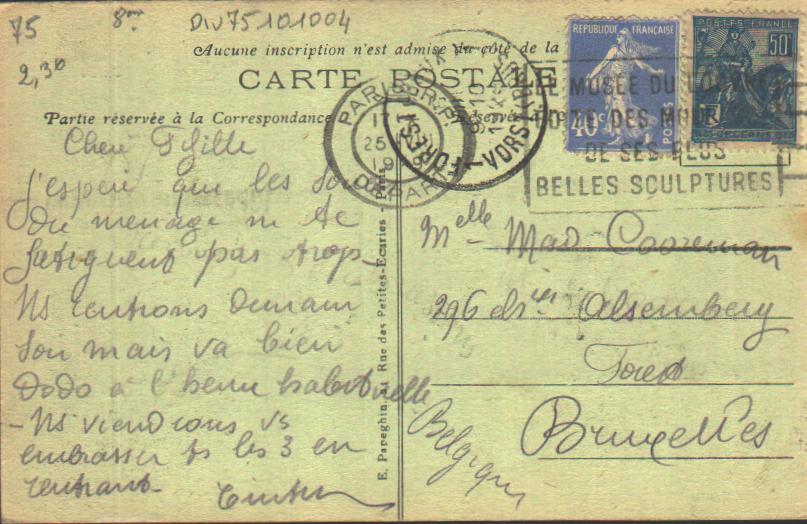 75
8me
Div75101004
2,30
Aucune inscription n'est admise du côté de la
CARTE POSTALE
Partie réservée à la Correspondance
réservée
PARIS
17
25
19
DEPART
FOREST
VORST
REPUBLIQUE FRANÇAISE
40c
POSTES
POSTES FRANCE
50c
LE MUSÉE DU
DES
DE SES PLUS
BELLES SCULPTURES
Cheri Fifille
J'espère que les soins
du menage ne te
fatiguent pas trop
Ns rentrons demain
soir mais va bien
dodo à l'heure habituelle
Ns viendrons vs
embrasser ts les 3 en
rentrant
E. Papeghin, Rue des Petites-Ecuries - Paris
Melle Mad Cooreman
296 chée Alsemberg
Forest
Bruxelles
Belgique